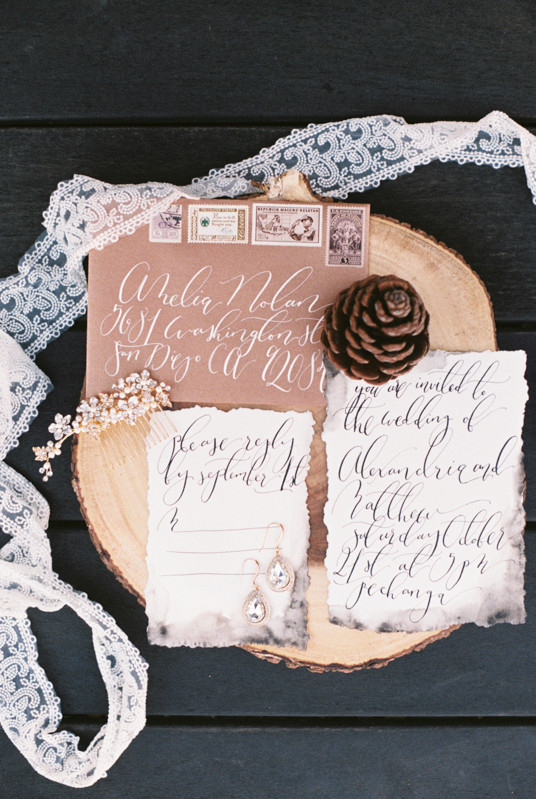 Amelia Nolan
5681 Washington st
San Diego CA
REPUBLIK MALUKU SELATAN
you are invited to
the wedding of
Alexandria and
Matthew
saturday October
21st at 5pm
pechanga
please reply
by september 1st
M